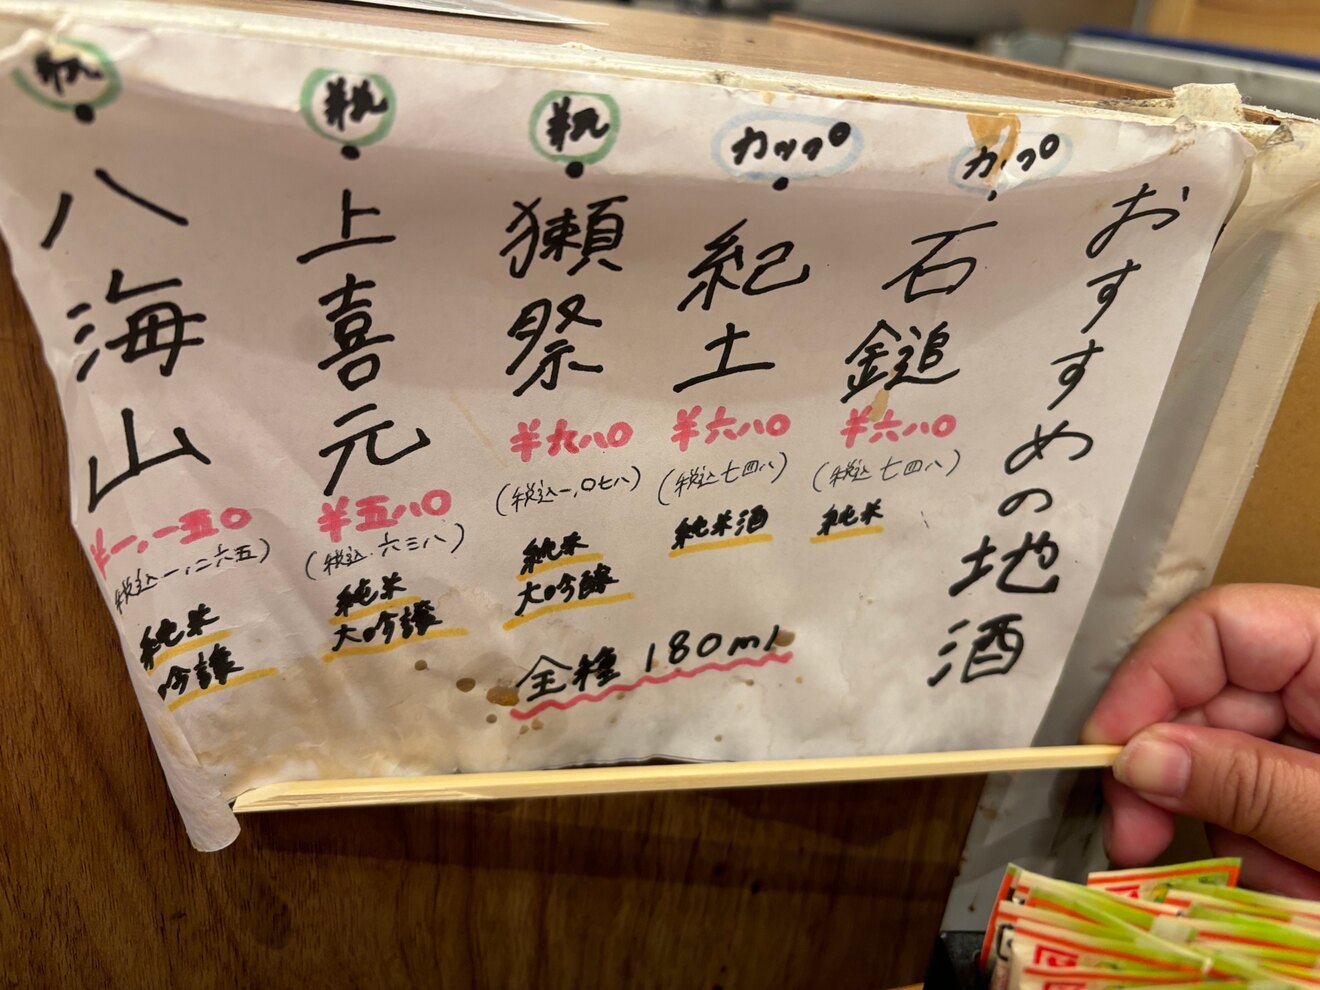 おすすめの地酒
カップ
石鎚
¥六八〇
(税込七四八)
純米
カップ
紀土
¥六八〇
(税込七四八)
純米酒
瓶
獺祭
¥九八〇
(税込一,〇七八)
純米
大吟醸
瓶
上喜元
¥五八〇
(税込.六三八)
純米
大吟譲
瓶
八海山
¥一,一五〇
(税込一,二六五)
純米
吟譲
全種 180ml